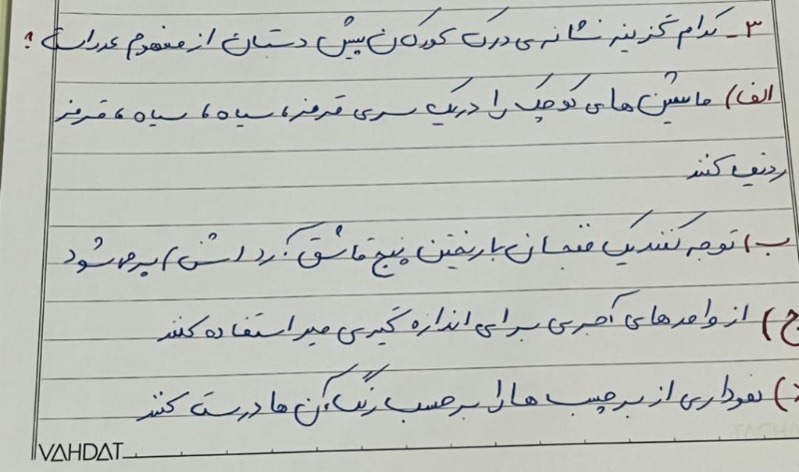 ۳- کدام گزینه نشانه ی درک کودکان پیش دبستان از مفهوم عدد است ؟
الف) ماشین های کوچک را در یک سری قرمز، سیاه، سیاه، قرمز
ردیف کنند
ب) توجه کنند یک فنجان با ریختن پنج قاشق آرد (شن) پر می شود
ج) از واحدهای آجری برای اندازه گیری میز استفاده کنند
د) نموداری از برچسب ها را بر حسب رنگ آن ها درست کنند
VAHDAT